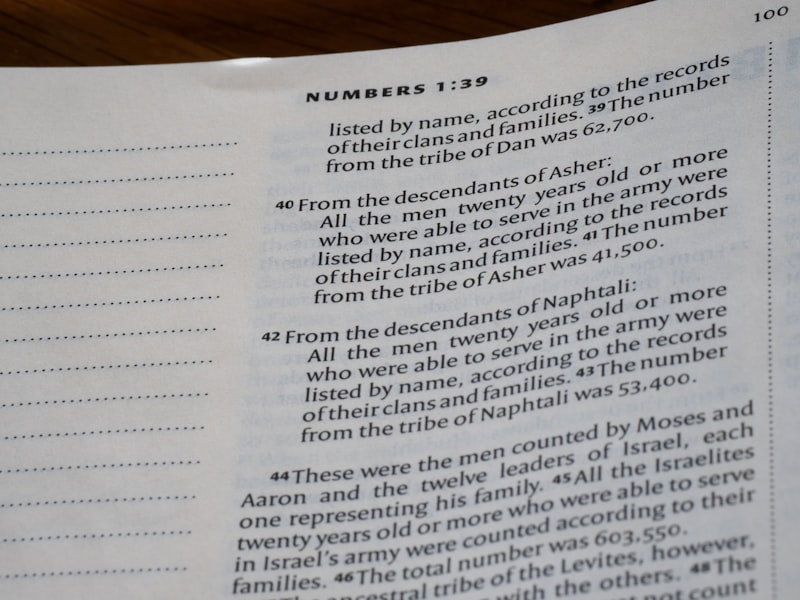 100
NUMBERS 1:39
listed by name, according to the records
of their clans and families. 39 The number
from the tribe of Dan was 62,700.
40 From the descendants of Asher:
All the men twenty years old or more
who were able to serve in the army were
listed by name, according to the records
of their clans and families. 41 The number
from the tribe of Asher was 41,500.
42 From the descendants of Naphtali:
All the men twenty years old or more
who were able to serve in the army were
listed by name, according to the records
of their clans and families. 43 The number
from the tribe of Naphtali was 53,400.
44 These were the men counted by Moses and
Aaron and the twelve leaders of Israel, each
one representing his family. 45 All the Israelites
twenty years old or more who were able to serve
in Israel's army were counted according to their
families. 46 The total number was 603,550.
ancestral tribe of the Levites, however,
with the others. 48 The
not count